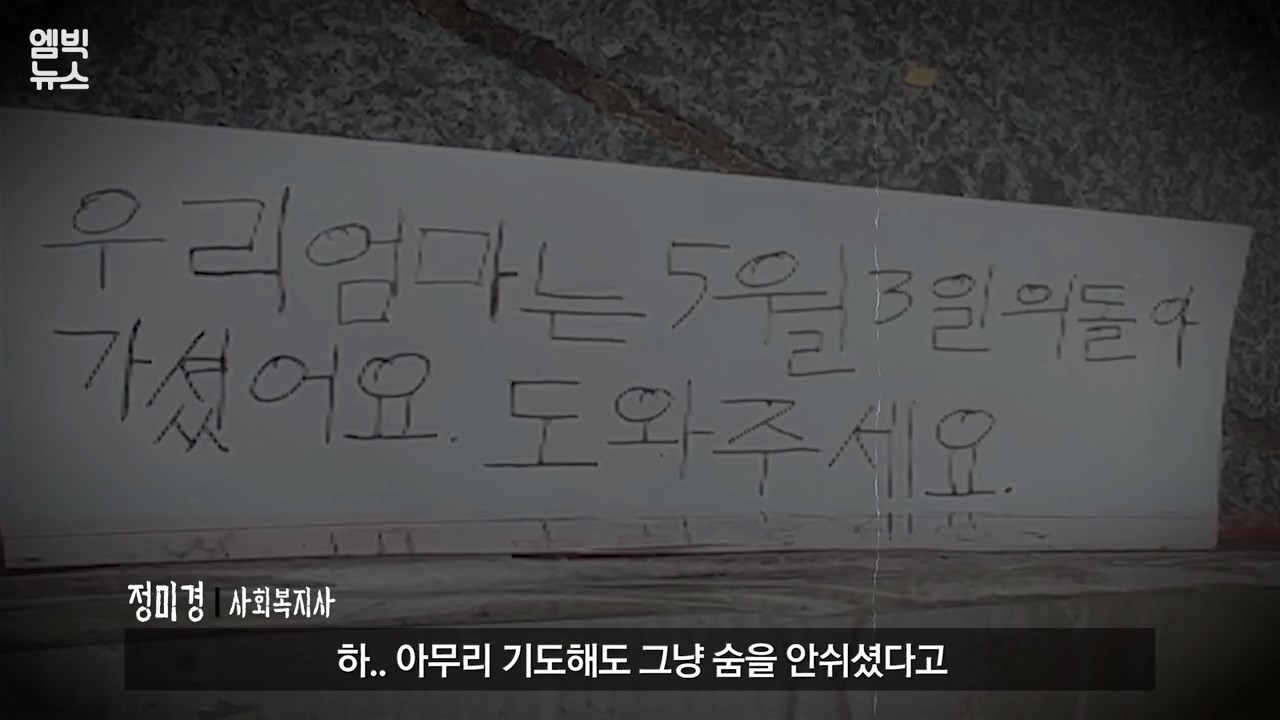 엠빅
뉴스
우리엄마는 5월3일의돌아
가셨어요. 도와주세요.
정미경 | 사회복지사
하.. 아무리 기도해도 그냥 숨을 안쉬셨다고